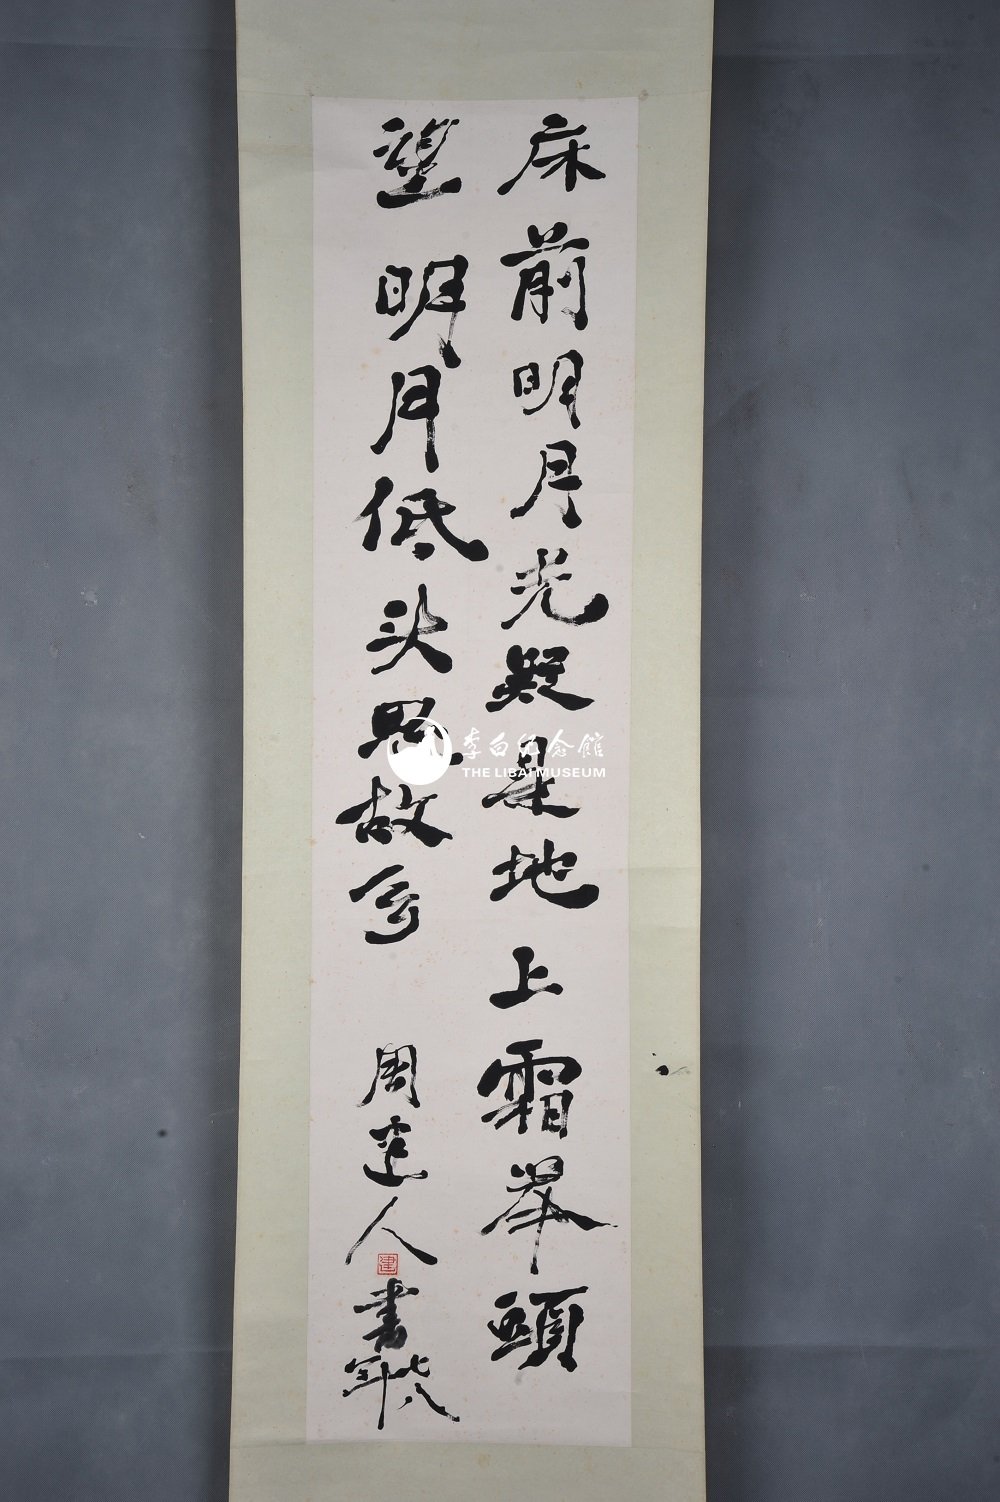 床前明月光疑是地上霜举頭
望明月低头思故乡
周建人
建
書
年七八
李白纪念館
THE LIBAI MUSEUM